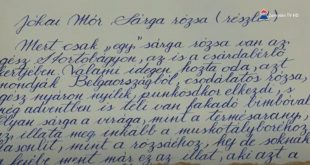 Jókai Mór Sárga rózsa (részlet)
Mert csak „egy" sárga rózsa van az
egész Hortobágyon, az is a csárdabíró
kertjében. Valami idegen hozta oda, azt
mondják Belgaországból, csodálatos rózsa,
egész nyáron nyílik, pünkösdkor elkezdi, s
még adventben is tele van fakadó bimbóval.
olyan sárga a virága, mint a termésarany,
az illata meg inkább a muskotályborhoz
hasonlít, mint a rózsáéhoz, hej de soknak
a fejébe ment már ez az illat, aki azt